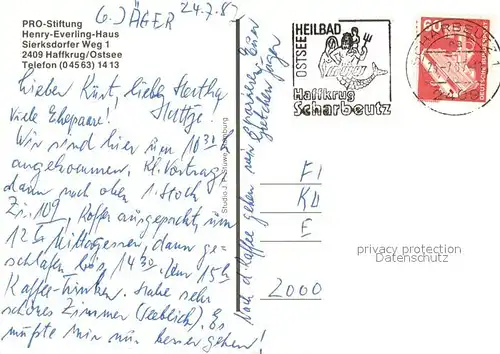 PRO-Stiftung
Henry-Everling-Haus
Sierksdorfer Weg 1
2409 Haffkrug/Ostsee
Telefon (04563) 1413
G. JÄGER 24.7.87
Lieber Kurt, liebe Hertha
viele
Wir sind hier um 10 30 h
angekommen. Kl. Vortrag
dann nach oben 1. Stock
Zi. 109, Koffer ausgepackt, um
12 h Mittagessen, dann ge-
schlafen bis 14 30. Um 15 h
Kaffee-Trinken. Habe sehr
schönes Zimmer (Seeblick). Es
müßte mir nun besser gehen!
Nach d. Kaffee gehen wir spazieren. Euer
Gretchen Jäger
OSTSEE
HEILBAD
Haffkrug
Scharbeutz
60
DEUTSCHE BUNDESPOST
Studio J.
FI
KU
E
2000
privacy protection
Datenschutz